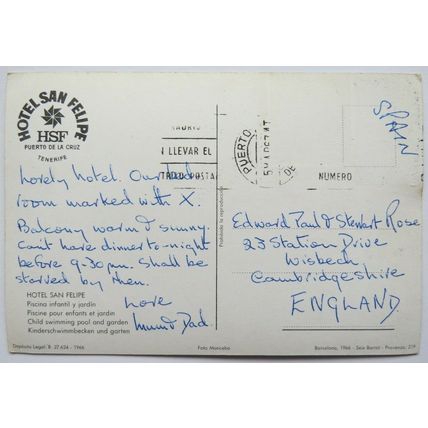 HOTEL SAN FELIPE
HSF
PUERTO DE LA CRUZ
TENERIFE
Lovely hotel. Our
room marked with X.
Balcony warm & sunny.
Can't have dinner to-night
before 9-30pm. Shall be
starved by then.
Love
Mum & Dad.
HOTEL SAN FELIPE
Piscina infantil y jardín
Piscine pour enfants et jardin
Child swimming pool and garden
Kinderschwimmbecken und garten
Depósito Legal: B. 27.624 - 1966
Foto Moncebo
Prohibida la reproducción
N LLEVAR EL
POSTA
PUERTO
DE
NUMERO
SPAIN
Edward Paul & Stewart Rose
23 Station Drive
Wisbech,
Cambridgeshire
ENGLAND
Barcelona, 1966 - Seix Barral - Provenza, 219